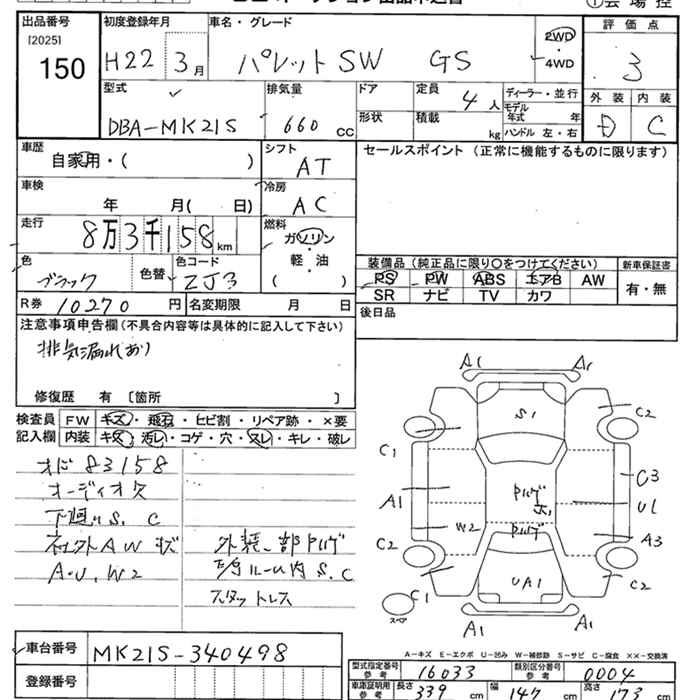 出品番号
[2025]
150
初度登録年月
H22 3月
車名・グレード
パレットSW GS
2WD
・
4WD
評価点
3
外装 内装
D C
型式
DBA-MK21S
排気量
660 cc
ドア
形状
定員
4人
積載
kg
ディーラー・並行
モデル
年式 年
ハンドル 左・右
車歴
自家用・( )
シフト
AT
セールスポイント (正常に機能するものに限ります)
車検
年 月( 日)
冷房
AC
走行
8万3千158km
燃料
ガソリン
・
軽・油
・
( )
色
ブラック
色替
色コード
ZJ3
装備品 (純正品に限り○をつけてください)
PS PW ABS エアB AW
SR ナビ TV カワ
新車保証書
有・無
R券 10270円
名変期限 月 日
後日品
注意事項申告欄(不具合内容等は具体的に記入して下さい)
排気漏れあり
修復歴 有 [箇所 ]
検査員 FW キズ・飛石・ヒビ割・リペア跡・×要
記入欄 内装 キズ・汚レ・コゲ・穴・スレ・キレ・破レ
オド83158
オーディオ欠
下廻りS.C
社外AW状
A.U.W2
外装一部
ルーム内S.C
スタットレス
A1 A1
S1
C2
C1
C3
A1
U1
W2
A3
C2
C2
UA1
C1
スペア
A1 A1
A-キズ E-エクボ U-凹み W-補修跡 S-サビ C-腐食 ××-交換済
車台番号 MK21S-340498
登録番号
型式指定番号
参考
16033
類別区分番号
参考
0004
車庫証明用
参考
長さ 339 cm
幅 147 cm
高さ 173 cm